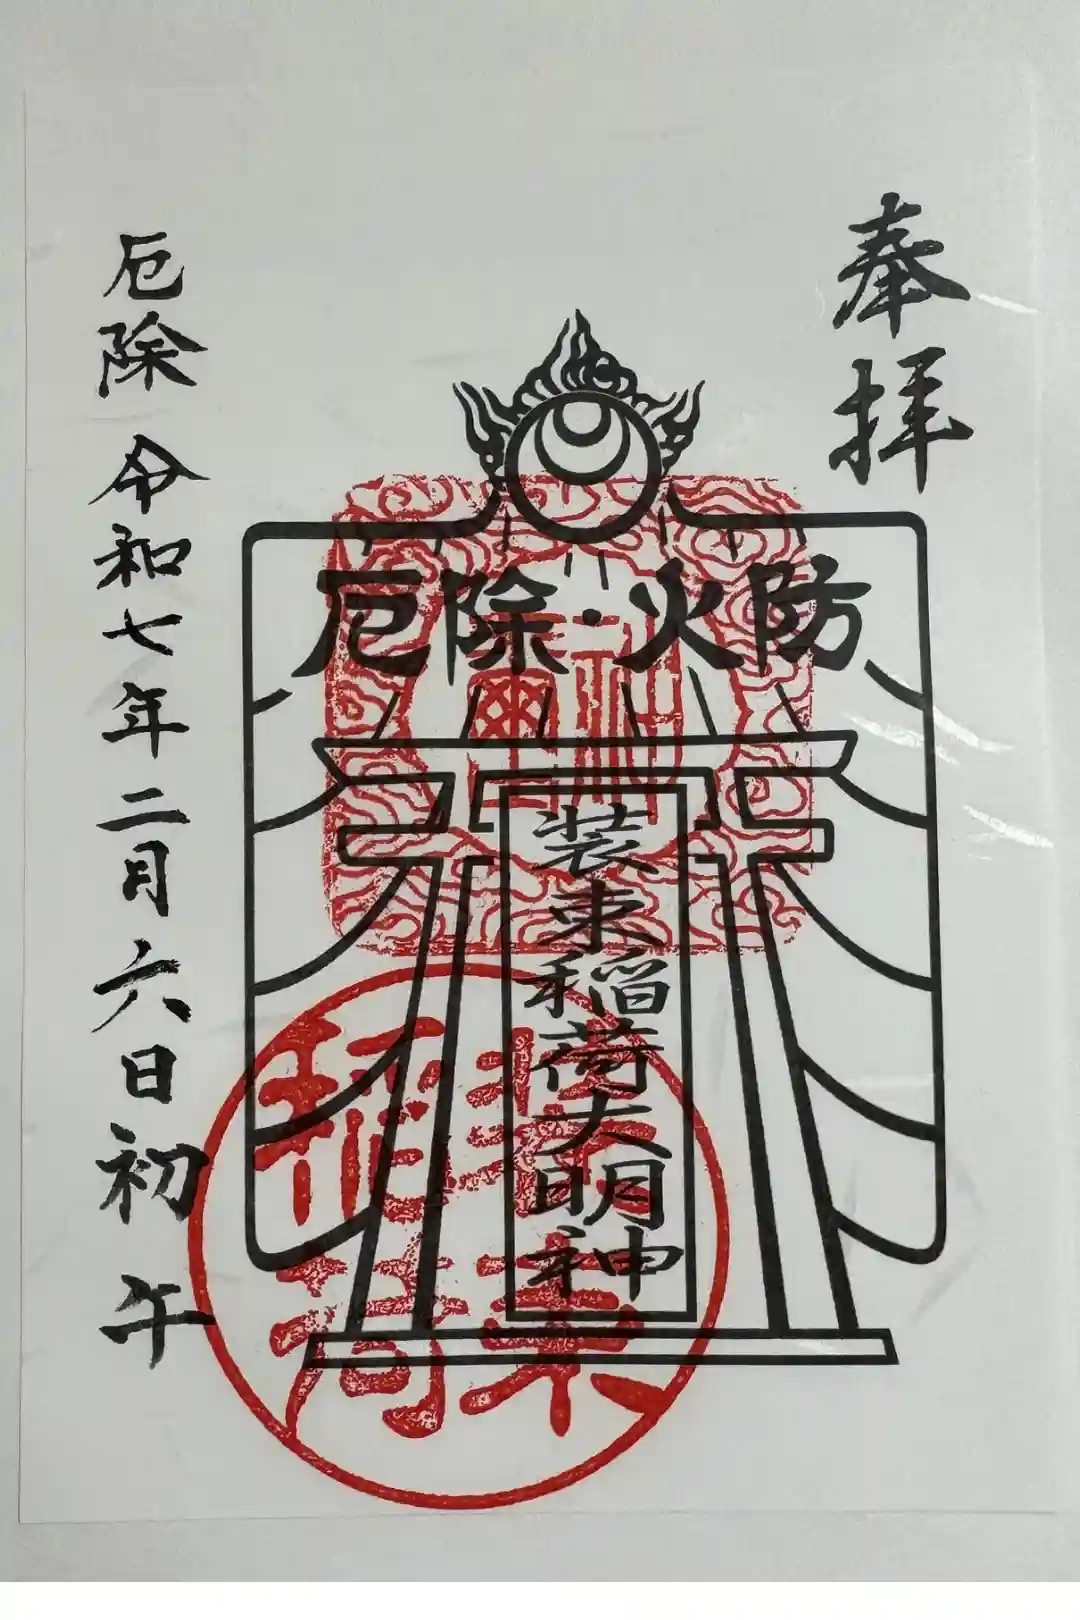 奉拝
厄除・火防
装束稲荷大明神
厄除 令和七年二月六日初午
装束
稲荷